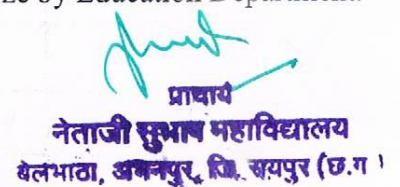 by Education Department
प्राचार्य
नेताजी सुभाष महाविद्यालय
बेलभाठा, अभनपुर, जि. रायपुर (छ.ग